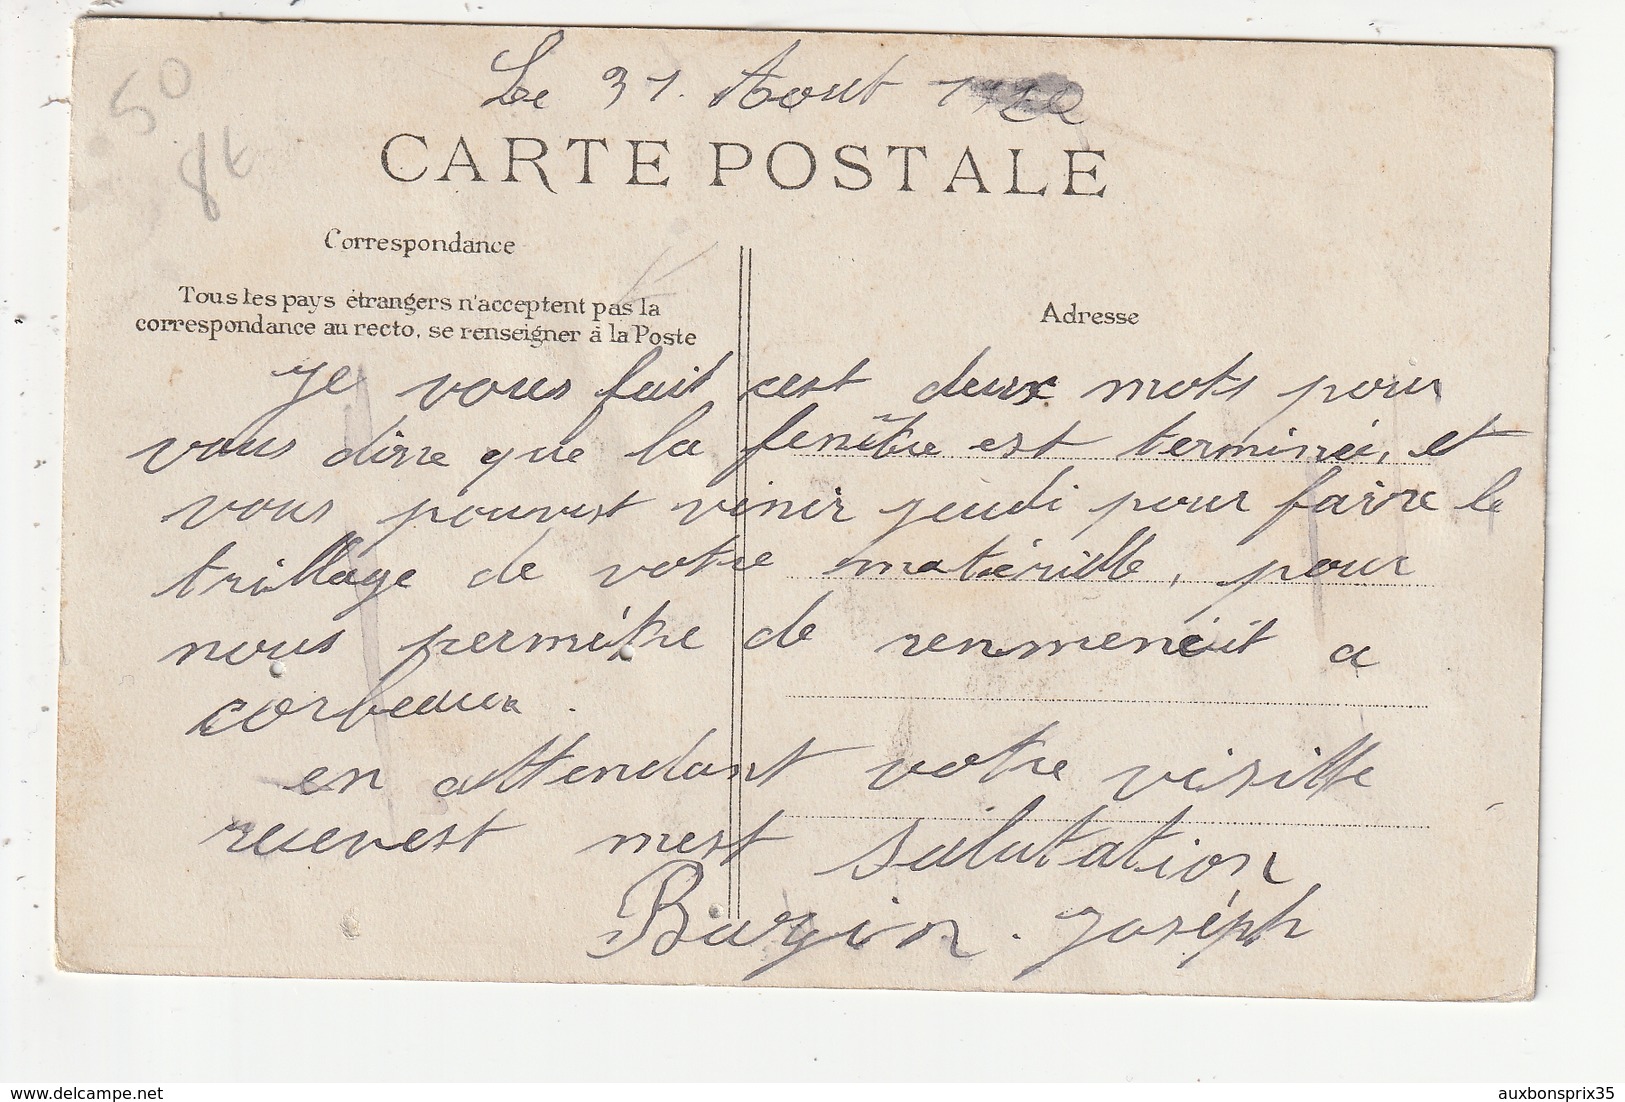 50
8t
Le 31. Août
CARTE POSTALE
Correspondance
Tous les pays étrangers n'acceptent pas la
correspondance au recto, se renseigner à la Poste
Adresse
Je vous fait cest deux mots pour
vous dire que la fenêtre est terminée, et
vous pouvest venir jeudi pour faire le
trillage de votre matérielle, pour
nous permétre de renmeneit a
corbeaux.
en attendant votre visitte
recevest mest salutation
Joséph
delcampe.net
auxbonsprix35